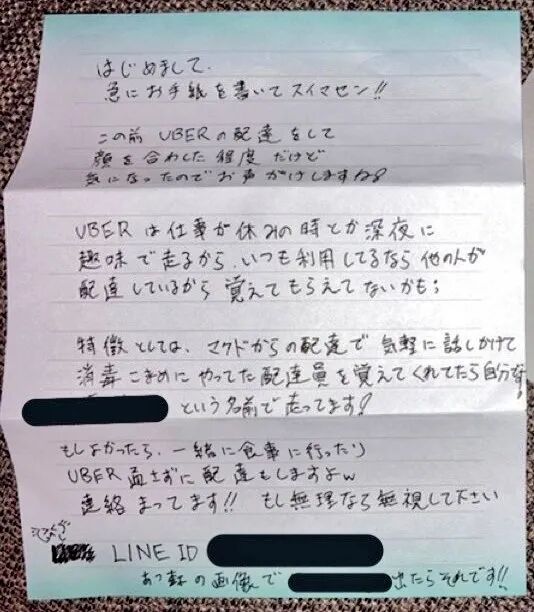 はじめまして、
急にお手紙を書いてスイマセン!!
この前 UBERの配達をして
顔を合わした程度だけど
気になったのでお声がけしますね!
UBERは仕事が休みの時とか深夜に
趣味で走るから、いつも利用してるなら他の人が
配達しているから覚えてもらえてないかも;
特徴としては、マクドからの配達で気軽に話しかけて
消毒こまめにやってた配達員を覚えてくれてたら自分
という名前で走ってます!
もしよかったら、一緒に食事に行ったり
UBER 通さずに配達もしますよw
連絡まってます!! もし無理なら無視して下さい
LINE ID
の画像で 出たらそれです!!